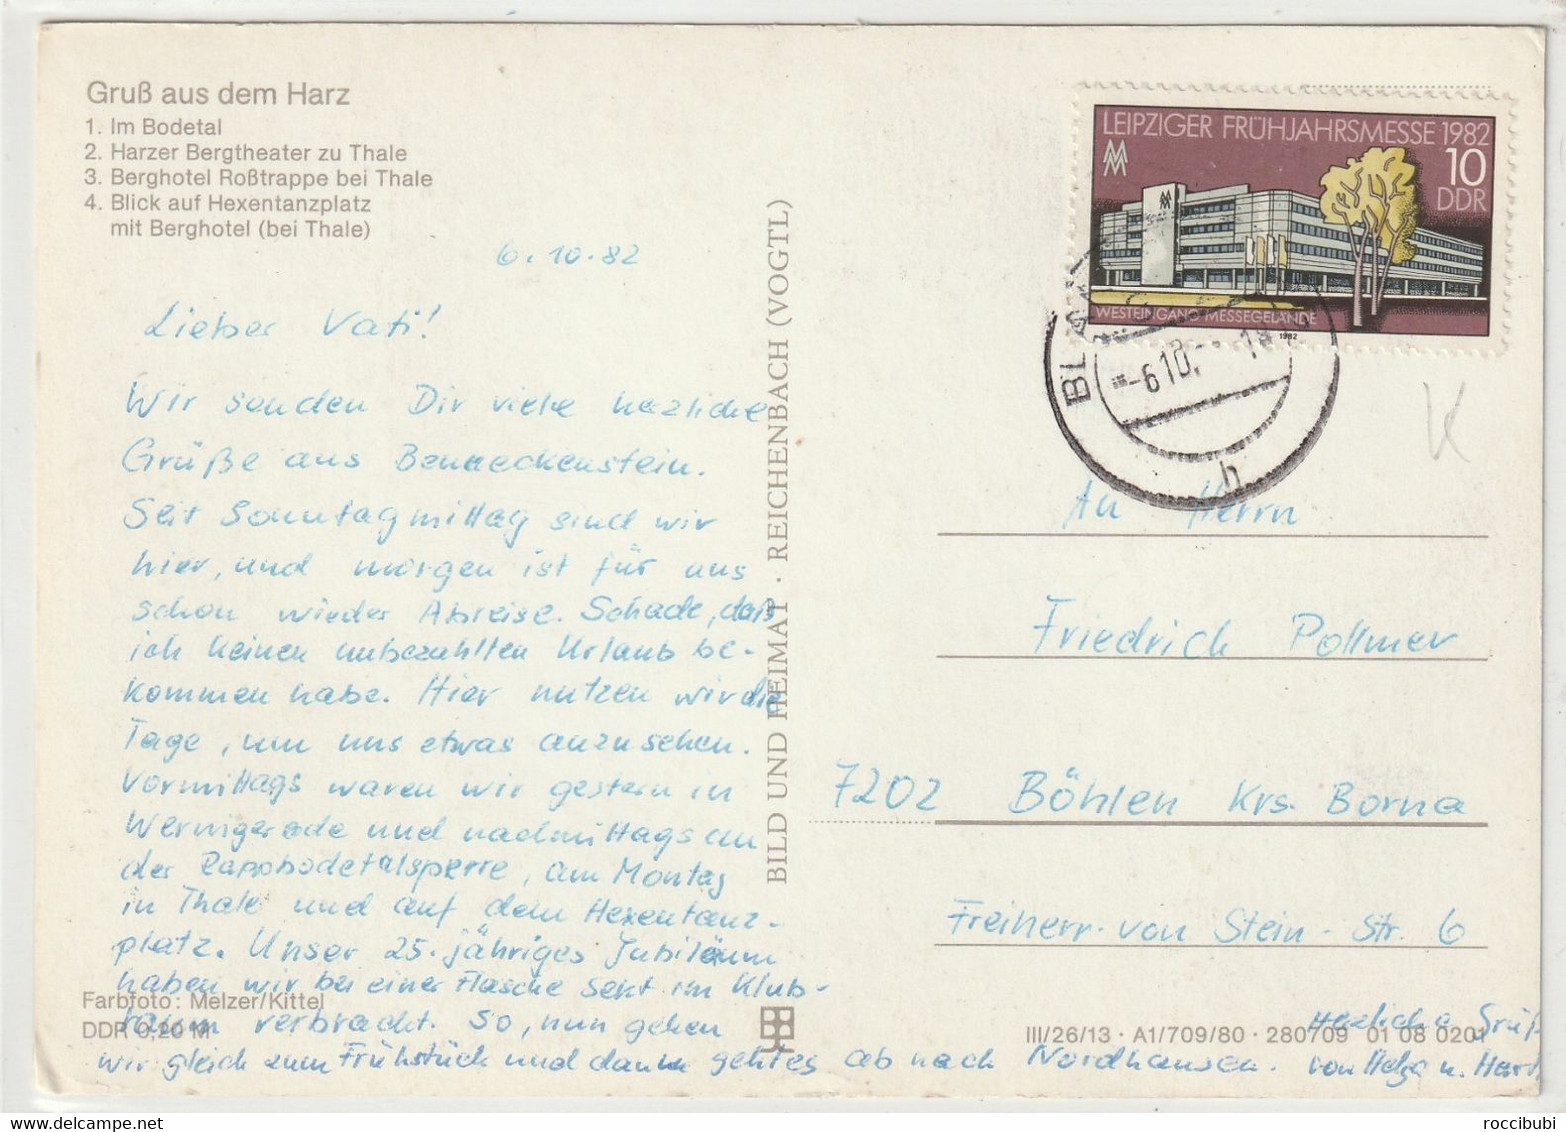 Gruß aus dem Harz
1. Im Bodetal
2. Harzer Bergtheater zu Thale
3. Berghotel Roßtrappe bei Thale
4. Blick auf Hexentanzplatz
mit Berghotel (bei Thale)
6.10.82
Lieber Vati!
Wir senden Dir viele herzliche
Grüße aus Benneckenstein.
Seit Sonntagmittag sind wir
hier, und morgen ist für uns
schon wieder Abreise. Schade, daß
ich keinen unbezahlten Urlaub be-
kommen habe. Hier nutzen wir die
Tage, um uns etwas anzusehen.
Vormittags waren wir gestern in
Wernigerode und nachmittags an
der Rappbodetalsperre, am Montag
in Thale und auf dem Hexentanz-
platz. Unser 25. jähriges Jubiläum
haben wir bei einer Flasche Sekt im Klub-
raum verbracht. So, nun gehen
wir gleich zum Frühstück und dann geht es ab nach Nordhausen.
Herzliche Grüß
von Helga u.
Farbfoto: Melzer/Kittel
DDR 0,20 M
BILD UND HEIMAT · REICHENBACH (VOGTL)
LEIPZIGER FRÜHJAHRSMESSE 1982
MM
10
DDR
WESTEINGANG MESSEGELÄNDE
1982
-6.10.
h
K
An Herrn
Friedrich Pollmer
7202 Böhlen Krs. Borna
Freiherr-von Stein-Str. 6
III/26/13 · A1/709/80 · 280709 01 08 0201
roccibubi